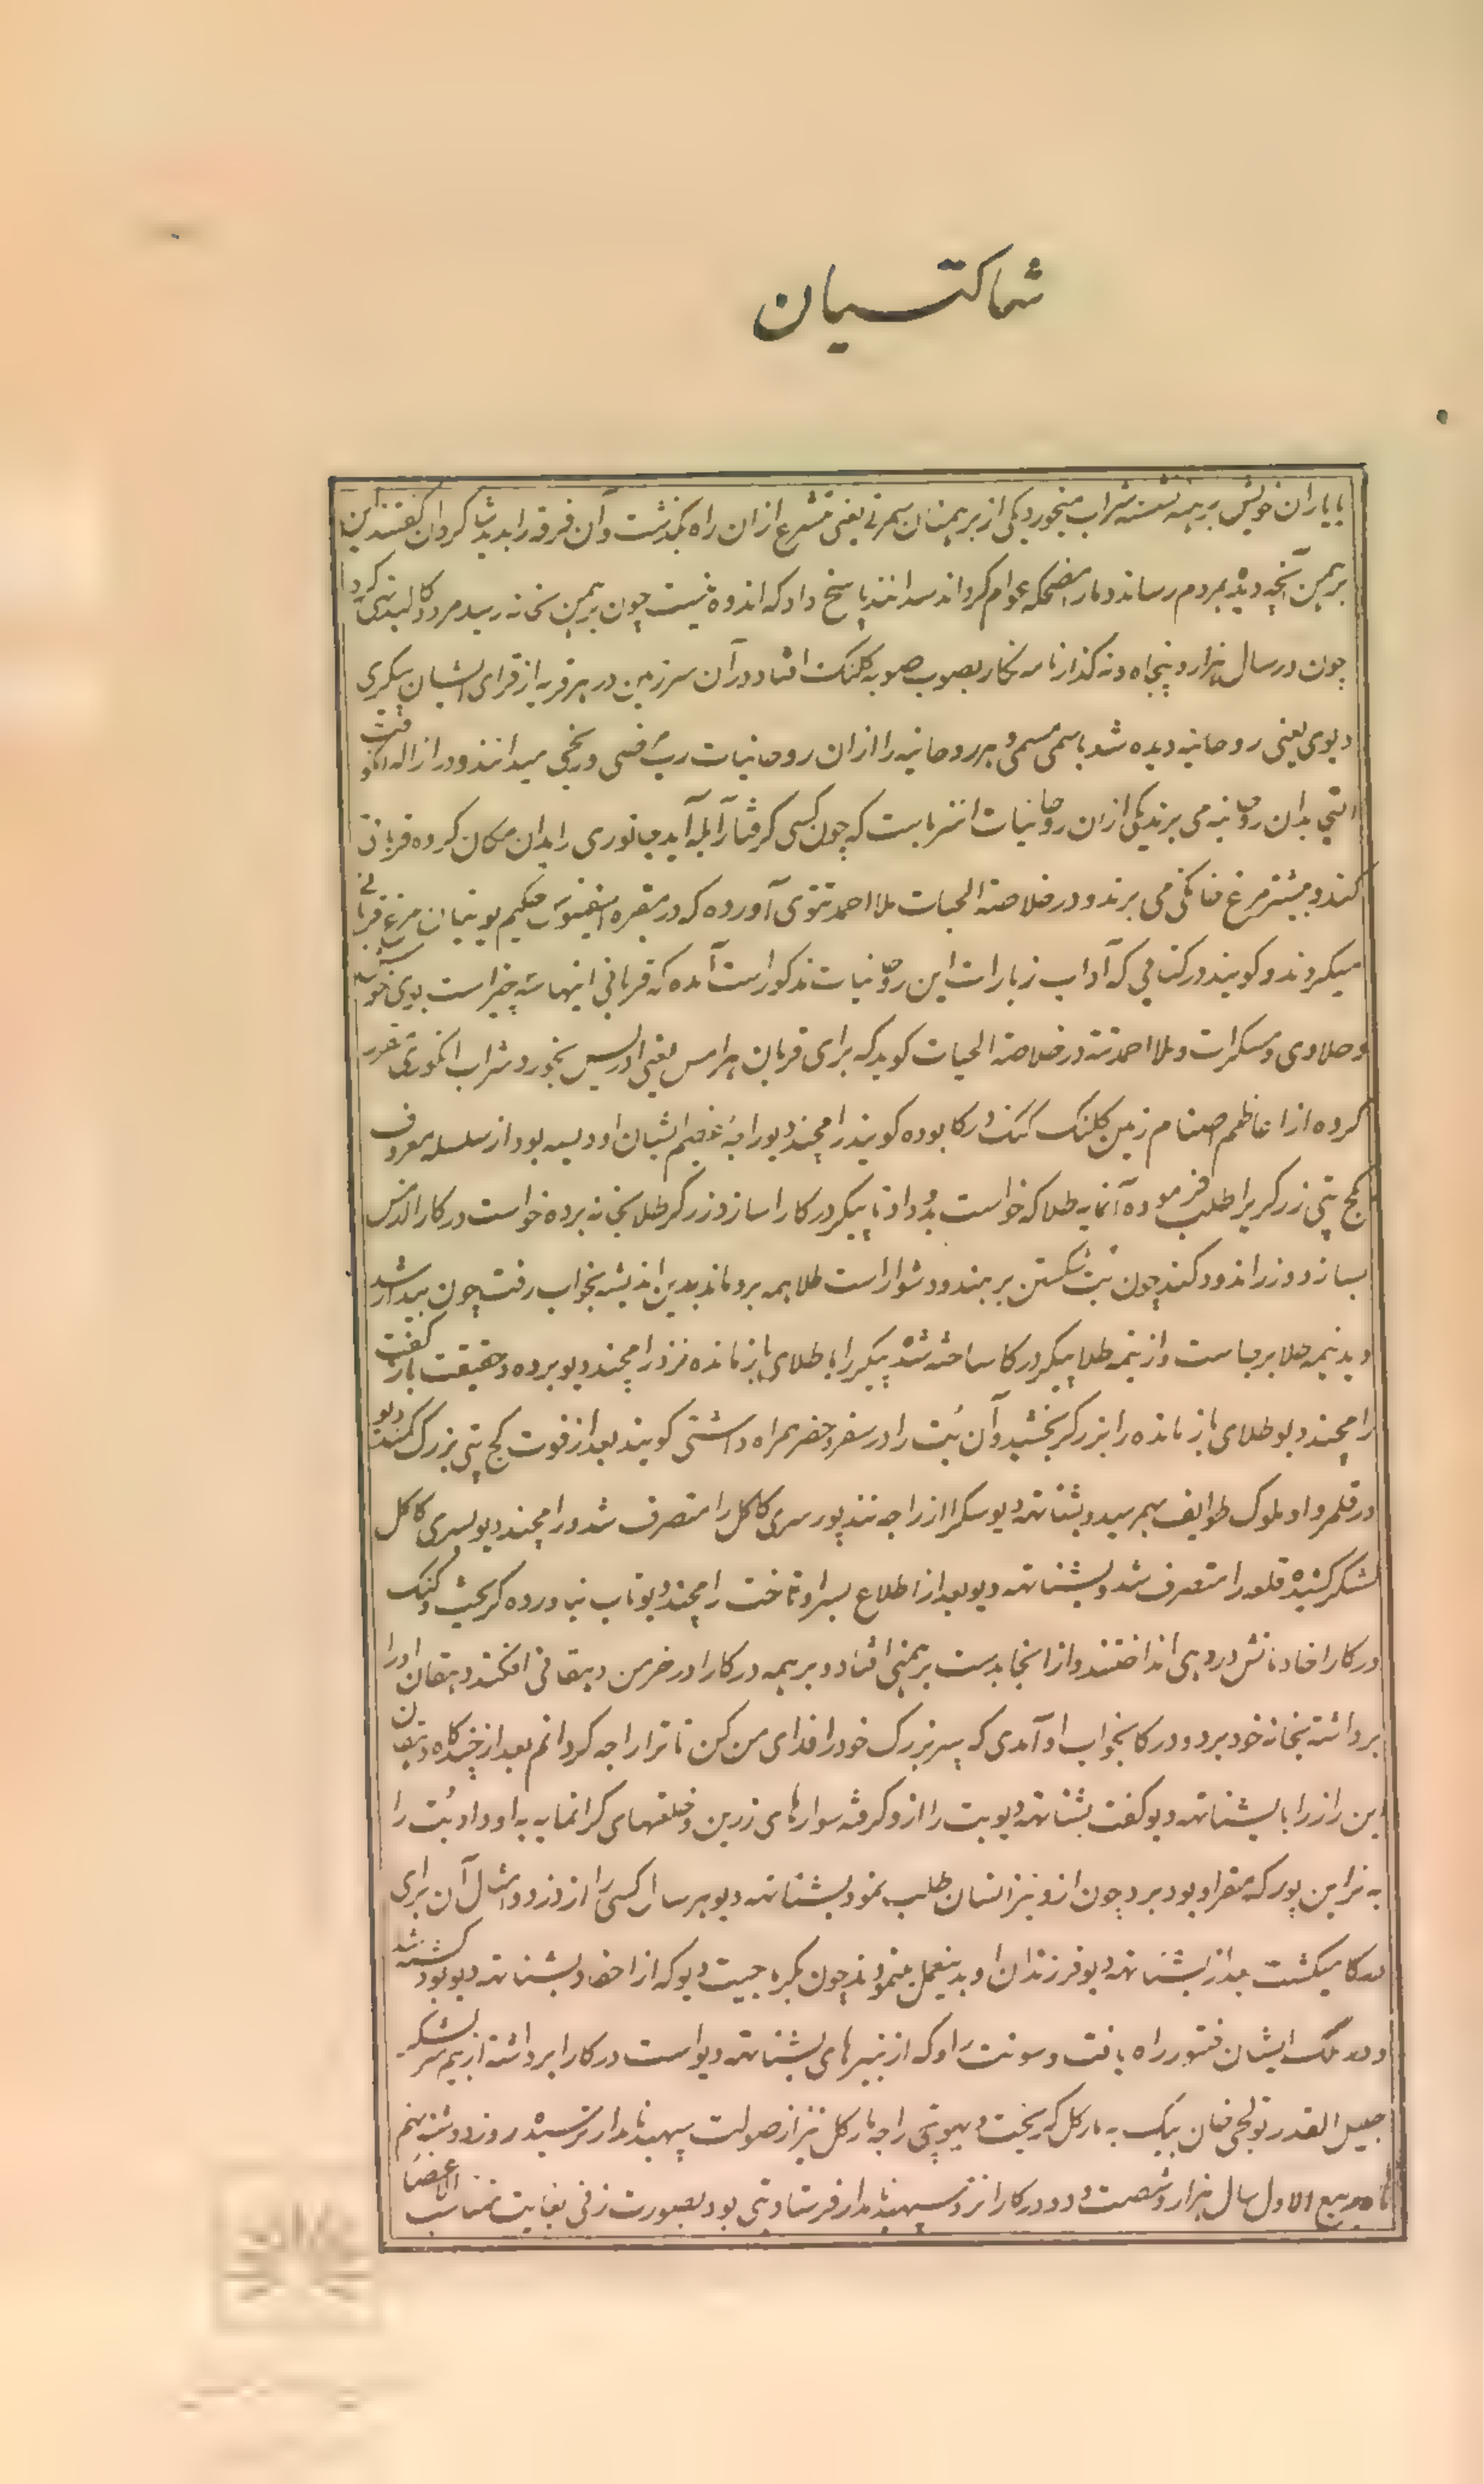 شماکتسیان
با یاران خویش برهنه نشسته شراب میخورد یکی از برهمنان سمرتی یعنی متشرع ازان راه بگذشت وآن فرقه را بدید شاکردان گفتند این
برهمن آنچه دیده بمردم رساند و مارا مضحکه عوام گرداند سدانند پاسخ داد که اندوه نیست چون برهمن بخانه رسید مرد و کالبد تهی کرد
چون در سال هزار و پنجاه ونه گذار نامه نگار بصوب صوبه کلنک افتاد و درآن سرزمین در هر قریه از قرای ایشان پیکری
دیوی یعنی روحانیه دیده شد باسمی مسمی و هر روحانیه را ازان روحانیات رب قسمی و رنجی میدانند و در ازاله آنکو
التجا بدان روحانیه می برند یکی ازان روحانیات است که چون کسی گرفتار آبله آید جانوری را بدان مکان کرده قربانی
کنند و بیشتر مرغ خانگی می برند و در خلاصة الحیات ملا احمد تتوی آورده که در مقبره حکیم یونانیان مرغ قربانی
میکردند و گویند در کتابی که آداب زیارات این روحانیات مذکور است آمده که قربانی اینها سه چیز است بوی خوش
و حلاوی و مسکرات و ملا احمد تته در خلاصة الحیات گوید که برای قربان هرامس یعنی ادریس بخور و شراب انگوری
کرده از اعاظم اصنام زمین کلنک کنک درکا بوده گویند رامچند دیو راجهٔ اودیسه بود از سلسله معروف
کج پتی زرگریرا طلب فرموده آنمایه طلا که خواست بدو داد تا پیکر درکارا سازد زرگر طلا بخانه برده خواست درکارا از مس
بسازد و زر اندود کند چون بت شکستن بر هندو دشوار است طلا همه برو ماند بدین اندیشه بخواب رفت چون بیدار شد
دید نیمه طلا بر جاست و از نیمه طلا پیکر درکا ساخته شده پیکر را با طلای باز مانده نزد رامچند دیو برده حقیقت باز گفت
رامچند دیو طلای باز مانده را بزرگر بخشید وآن بت را در سفر و حضر همراه داشتی گویند بعد از فوت کج پتی بزرگ
در قلمرو او ملوک طوایف بهمرسید و بشناتهه دیو سکرا از راجه نندپور سری کاکل را متصرف شد و رامچند دیو بسری کاکل
لشکر کشیده قلعه را متصرف شد و بشناتهه دیو بعد از اطلاع بسر او تاخت رامچند دیو تاب نیاورده گریخت و کنک
درکارا خادمانش در دهی انداختند و از انجا بدست برهمنی افتاد و برهمه درکارا در خرمن دهقانی افکند دهقان اورا
برداشته بخانه خود برد و درکا بخواب او آمدی که پسر بزرگ خود را فدای من کن تا ترا راجه گردانم بعد از چندگاه دهقان
این راز را با بشناتهه دیو گفت بشناتهه دیو بت را ازو گرفته سوارهای زرین و خلعتهای گرانمایه به او داد و بت را
به نراین پور که مقر او بود برد چون ازو نیز انسان طلب نمود بشناتهه دیو هر سال کسی را از دزد و امثال آن برای
درکا میکشت بعد از بشناتهه دیو فرزندان او بدینعمل مینمودند چون بکرماجیت دیو که از احفاد بشناتهه دیو بود کشته شد
و در ملک ایشان فتور راه یافت و سونت راو که از نبیرهای بشناتهه دیو است درکارا برداشته از بیم سر لشکر
جلیل القدر تولچی خان بیک به مارکل گریخت و بهوپتی راجه مارکل نیز از صولت سپهبد نامدار ترسیده روز دوشنبه نهم
ماه ربیع الاول سال هزار و شصت و دو درکارا نزد سپهبد نامدار فرستاد بتی بود بصورت زنی بغایت متناسب الاعضا